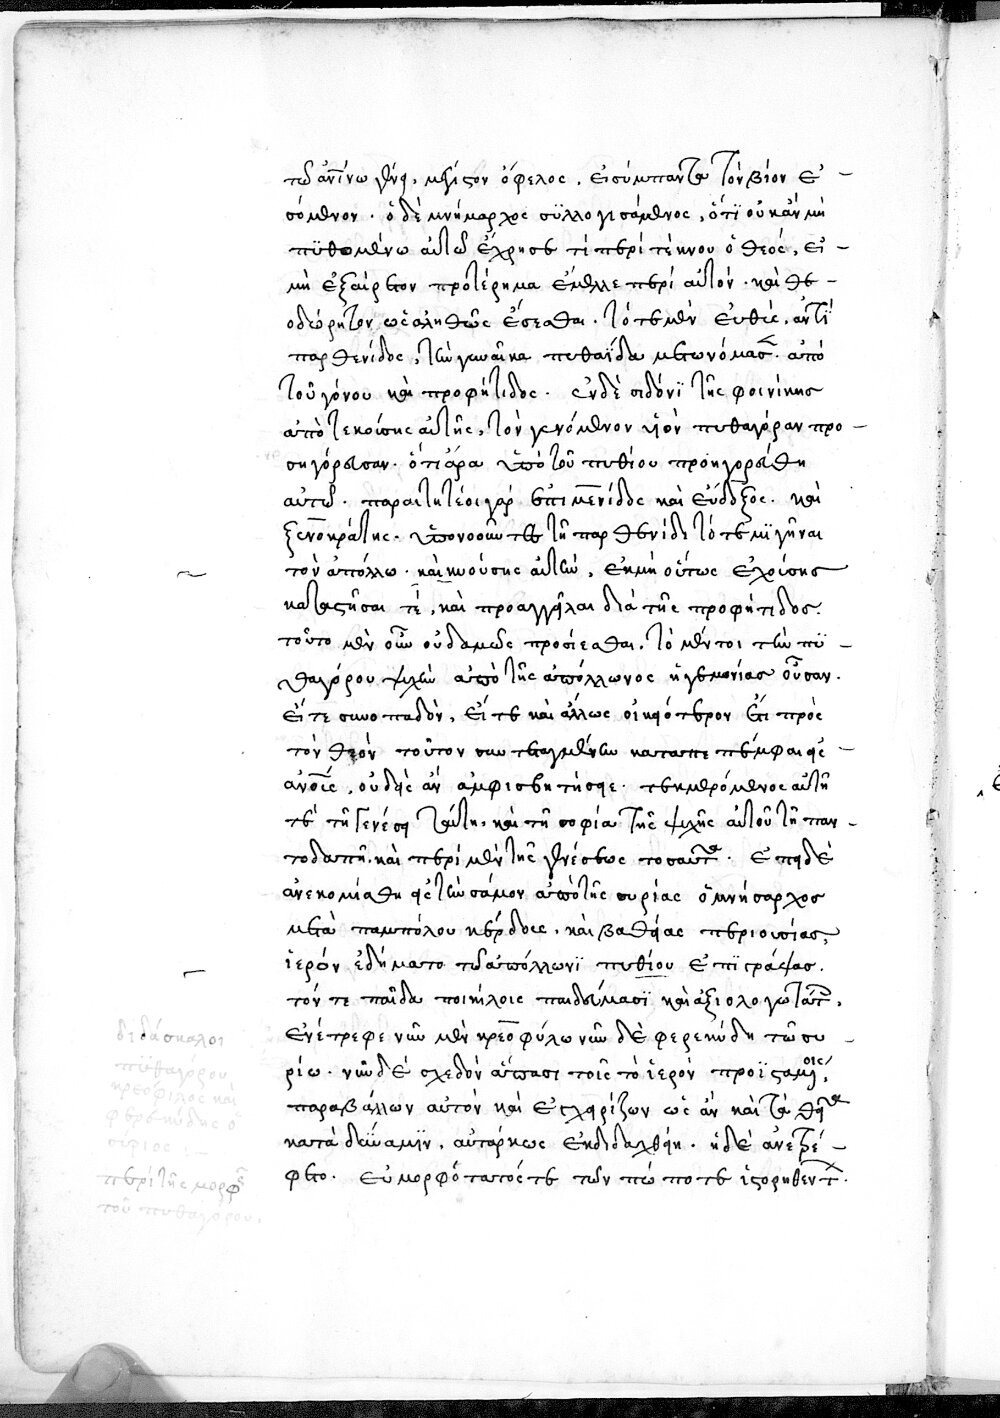 τῶ ἀνίνω γένει, μέγιστον ὄφελος, εἰς σύμπαντα τὸν βίον ἐ-
σόμενον. ὁ δὲ μνήμαρχος συλλογισάμενος, ὅτι οὐκ ἂν μὴ
πυθομένω αὐτῶ ἔχρησέ τι περὶ τέκνου ὁ θεός, εἰ-
μὴ ἐξαίρετον προτέρημα ἔμελλε περὶ αὐτόν. καὶ θε-
οδώρητον ὡς ἀληθῶς ἔσεσθαι. τότε μὲν εὐθὺς, ἀντὶ
παρθενίδος, τὴν γυναῖκα πυθαΐδα μετωνόμασεν. ἀπὸ
τοῦ γόνου καὶ προφήτιδος. ἐν δὲ σιδόνι τῆς φοινίκης
ἀποτεκούσης αὐτῆς, τὸν γενόμενον υἱὸν πυθαγόραν προ-
σηγόρευσαν. ὅτι ἄρα ὑπὸ τοῦ πυθίου προηγορεύθη
αὐτῶ. παραιτητέοι γὰρ ἐπιμενίδος καὶ εὔδοξος. καὶ
ξενοκράτης. ὑπονοοῦντες τῆ παρθενίδι τότε μιγῆναι
τὸν ἀπόλλω. καὶ κυούσης αὐτὴν, ἐκ μὴ οὕτως ἐχούσης
καταστῆσαί τε, καὶ προαγγεῖλαι διὰ τῆς προφήτιδος.
τοῦτο μὲν οὖν οὐδαμῶς προσίεσθαι. τὸ μέντοι τὴν πυ-
θαγόρου ψυχὴν ἀπὸ τῆς ἀπόλλωνος ἡγεμονίας οὖσαν.
εἴτε συνοπαδὸν, εἴτε καὶ ἄλλως οἰκειότερον ἔτι πρὸς
τὸν θεὸν τοῦτον συντεταγμένην καταπεπέμφθαι εἰς
ἀνους, οὐδεὶς ἂν ἀμφισβητήσειε. τεκμαιρόμενος αὐτῆ
τε τῆ γενέσει ταύτη, καὶ τῆ σοφία τῆς ψυχῆς αὐτοῦ τῆ παν-
τοδαπῆ. καὶ περὶ μὲν τῆς γενέσεως τοσαῦτα. ἐπεὶ δὲ
ἀνεκομίσθη εἰς τὴν σάμον ἀπὸ τῆς συρίας ὁ μνήσαρχος
μετὰ παμπόλου κέρδους, καὶ βαθείας περιουσίας,
ἱερὸν ἐδήματο τῶ ἀπόλλωνι πυθίου ἐπιγράψας.
τόν τε παῖδα ποικίλοις παιδεύμασι καὶ ἀξιολογωτάτοις,
ἐνέτρεφε νῦν μὲν κρεοφύλω νῦν δὲ φερεκύδη τῶ συ-
ρίω. νῦν δὲ σχεδὸν ἅπασι τοῖς τὸ ἱερὸν προϊσταμένοις,
παραβάλλων αὐτὸν καὶ ἐγχειρίζων ὡς ἂν καὶ τὰ θεῖα
κατὰ δύναμιν, αὐτάρκως ἐκδιδαχθείη. ἡ δὲ ἀνετρέ-
φετο. εὐμορφότατός τε τῶν πώποτε ἱστορηθέντων.
διδάσκαλοι
πυθαγόρου
κρεόφιλος καὶ
φερεκύδης ὁ
σύριος
περὶ τῆς μορφῆς
τοῦ πυθαγόρου.